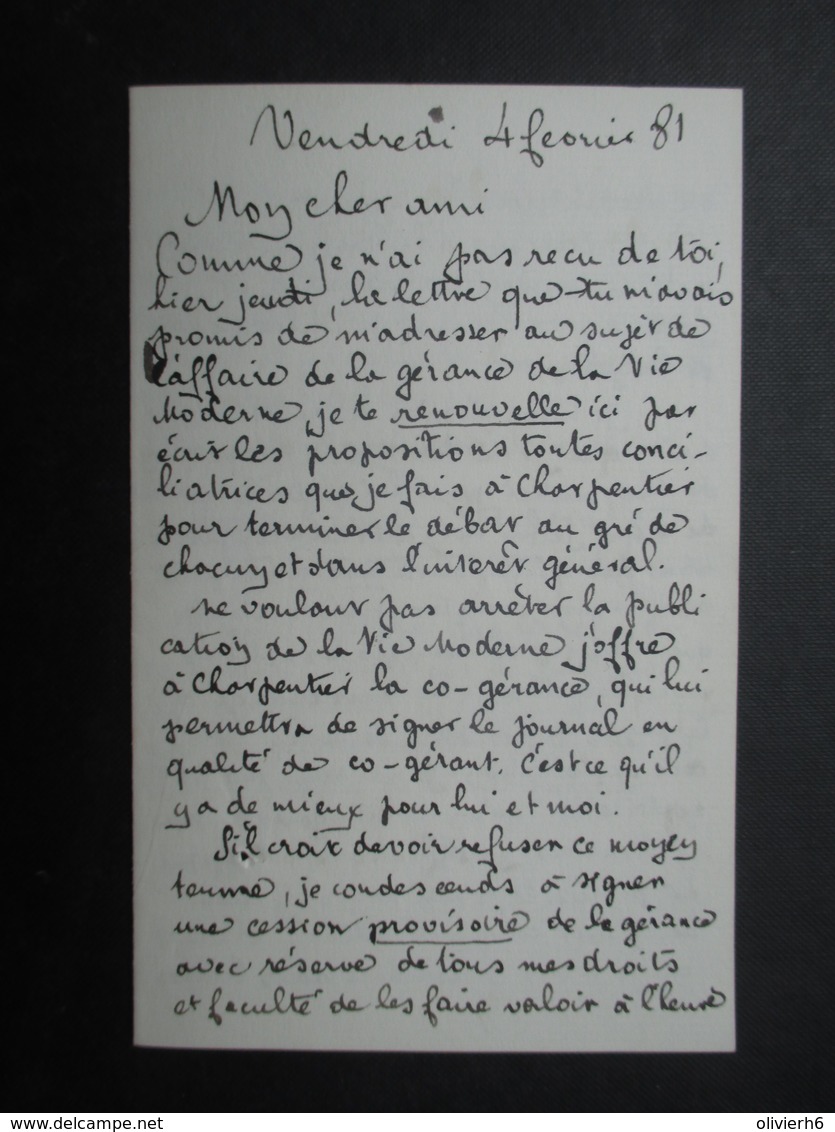 Vendredi 4 fevrier 81
Mon cher ami
Comme je n'ai pas recu de toi,
hier jeudi, la lettre que tu m'avais
promis de m'adresser au sujet de
l'affaire de la gérance de la Vie
Moderne, je te renouvelle ici par
écrit les propositions toutes conci-
liatrices que je fais à Charpentier
pour terminer le débat au gré de
chacun et dans l'intérêt général.
Ne voulant pas arrêter la publi
cation de la Vie Moderne j'offre
à Charpentier la co-gérance, qui lui
permettra de signer le journal en
qualité de co-gérant. C'est ce qu'il
y a de mieux pour lui et moi.
S'il croit devoir refuser ce moyen
terme, je condescends à signer
une cession provisoire de la gérance
avec réserve de tous mes droits
et faculté de les faire valoir à l'heure
www.delcampe.net
olivierh6